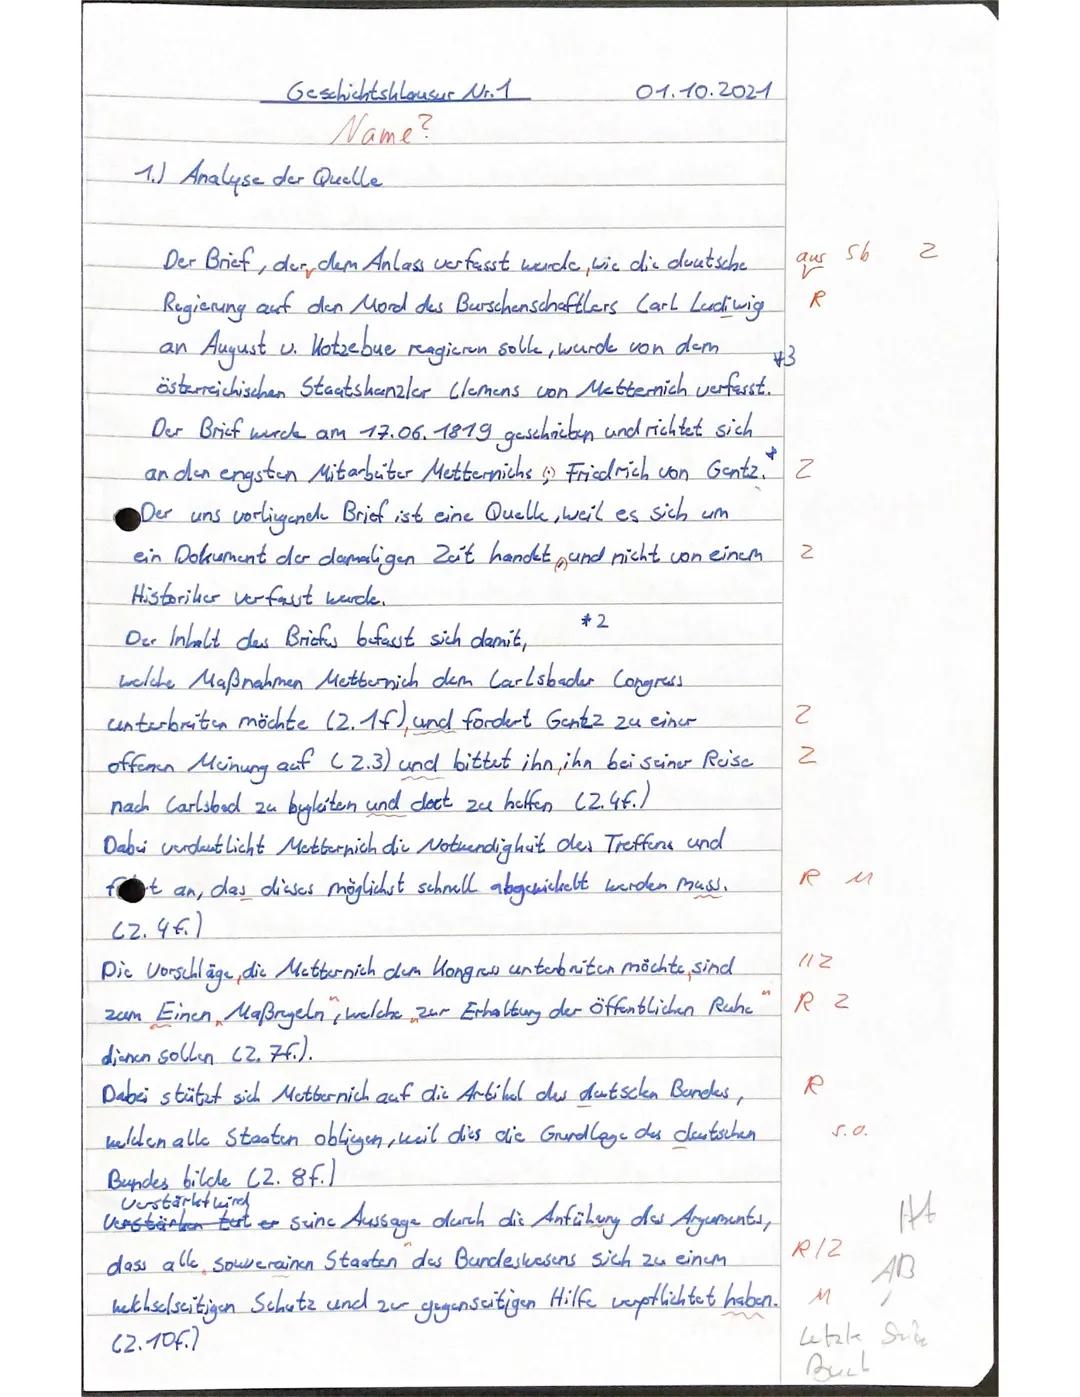 Geschichtsklausur Nr.1 01.10.2021
Name?
1.) Analyse der Quelle
Der Brief, der dem Anlass verfasst wurde, wie die deutsche aus Sb Z
Regierung auf den Mord des Burschenschaftlers Carl Ludiwig R
an August v. Kotzebue reagieren solle, wurde von dem
österreichischen Staatskanzler Clemens von Metternich verfasst. *3
Der Brief wurde am 17.06.1819 geschrieben und richtet sich
an den engsten Mitarbeiter Metternichs (;) Friedrich von Gentz.* Z
Der uns vorliegende Brief ist eine Quelle, weil es sich um
ein Dokument der damaligen Zeit handelt, und nicht von einem Z
Historiker verfasst wurde.
Der Inhalt des Briefes befasst sich damit, *2
welche Maßnahmen Metternich dem Carlsbader Congress
unterbreiten möchte (Z.1f), und fordert Gentz zu einer Z
offenen Meinung auf (Z.3) und bittet ihn, ihn bei seiner Reise Z
nach Carlsbad zu begleiten und dort zu helfen (Z.4f.)
Dabei verdeutlicht Metternich die Notwendigkeit des Treffens und
an, das dieses möglichst schnell abgewickelt werden muss. R M
(Z.4f.)
Die Vorschläge, die Metternich dem Kongress unterbreiten möchte, sind IIZ
zum Einen „Maßregeln", welche „zur Erhaltung der öffentlichen Ruhe" R Z
dienen sollen (Z.7f.).
Dabei stützt sich Metternich auf die Artikel des deutschen Bundes, R
welchen alle Staaten obliegen, weil dies die Grundlage des deutschen s.o.
Bundes bilde (Z. 8f.)
Verstärkt wird
er seine Aussage durch die Anführung des Arguments, Ht
dass alle „souverainen Staaten" des Bundeswesens sich zu einem R/Z AB
wechselseitigen Schutz und zur gegenseitigen Hilfe verpflichtet haben. M
(Z.10f.) Letzte Seite
Buch